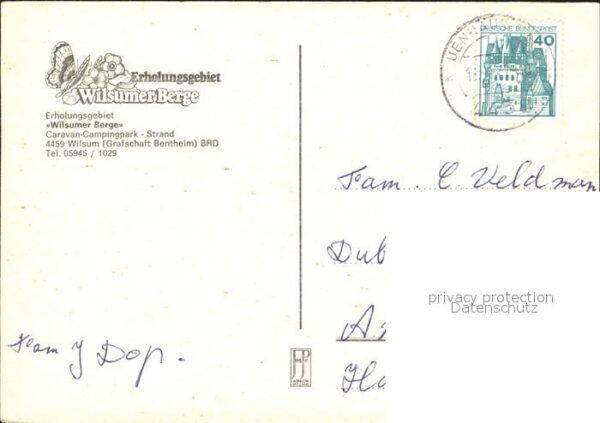 Erholungsgebiet
Wilsumer Berge
Erholungsgebiet
»Wilsumer Berge«
Caravan-Campingpark - Strand
4459 Wilsum (Grafschaft Bentheim) BRD
Tel. 05945 / 1029
DEUTSCHE BUNDESPOST
40
UENHAU
Fam. C Veldman
Dub
privacy protection
Datenschutz
A
Ho
Fam J Dop.